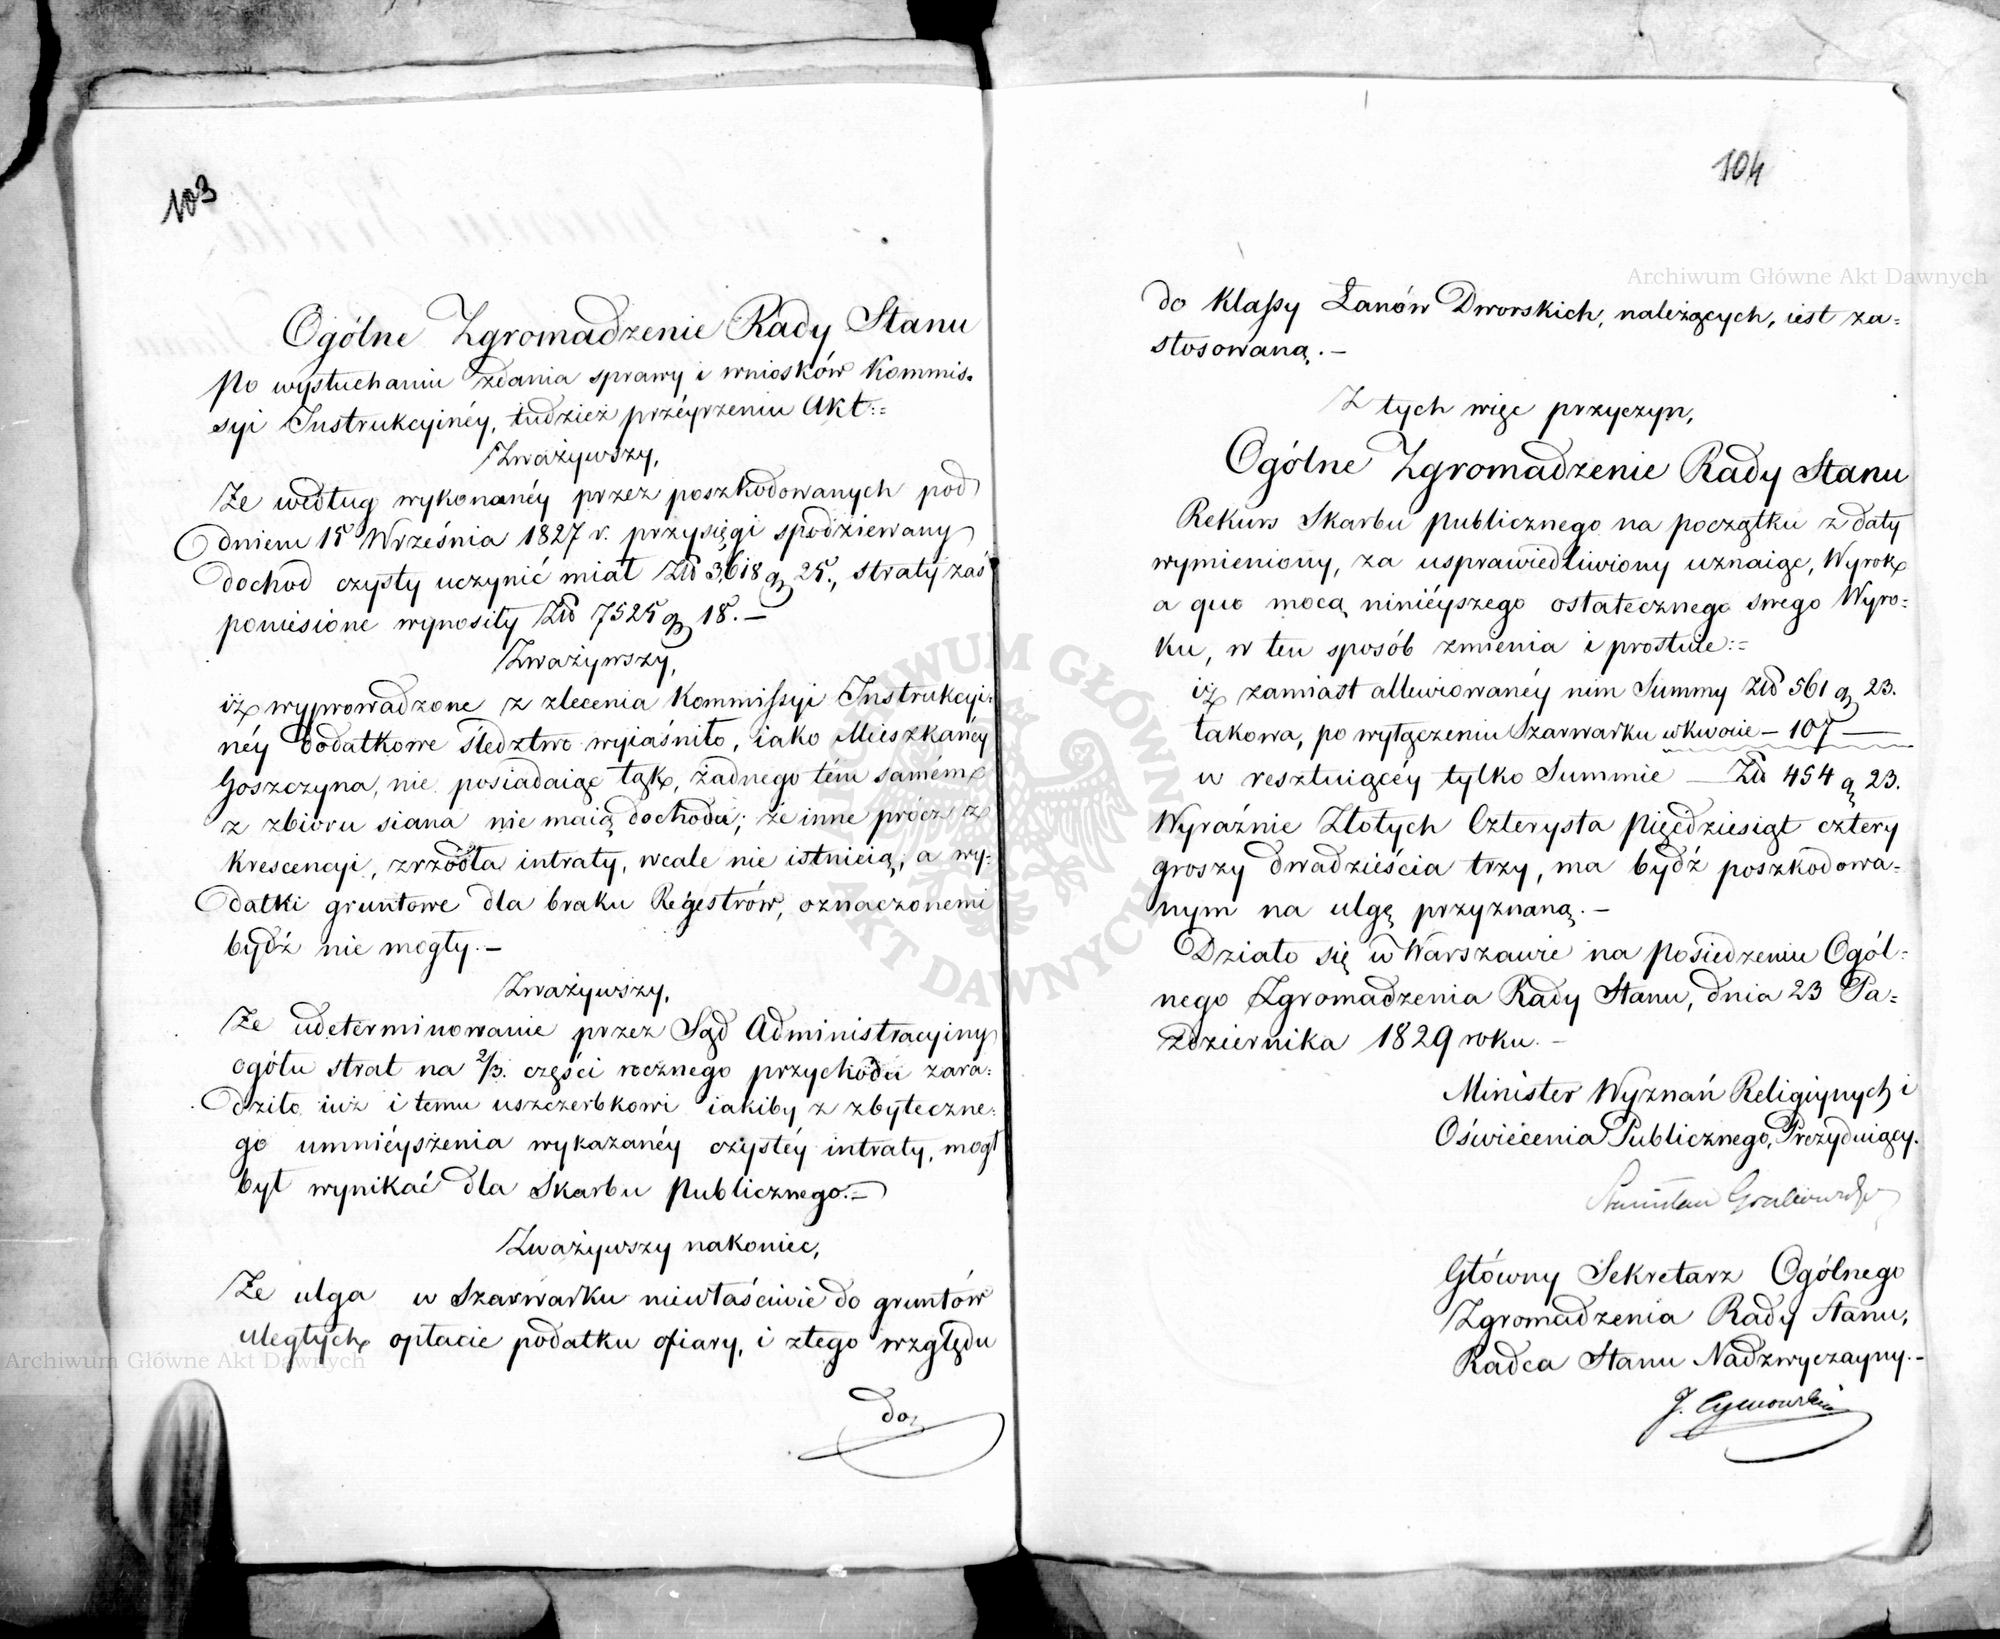 103
Ogólne Zgromadzenie Rady Stanu
Po wysłuchaniu zdania sprawy i wniosków Kommis-
syi Instrukcyinéy, tudzież przéyrzeniu Akt:=
Zważywszy,
Że według wykonanéy przez poszkodowanych pod
dniem 15 Września 1827 r. przysięgi spodziewany
dochod czysty uczynić miał Złp 3,618 g 25., straty zaś
poniesione wynosiły Złp 7525 g 18.–
Zważywszy,
iż wyprowadzone z zlecenia Kommissyi Instrukcyi-
néy dodatkowe śledztwo wyiaśniło, iako Mieszkańcy
Goszczyna, nie posiadaiąc łąk, żadnego tém samém
z zbioru siana nie maią dochodu; że inne prócz z
Krescencyi, zrzódła intraty, wcale nie istnieią, a wy-
datki gruntowe dla braku Regestrów, oznaczonemi
bydź nie mogły.–
Zważywszy,
Że udeterminowanie przez Sąd Administracyiny
ogółu strat na 2/3. części rocznego przychodu zara-
dziło iuż i temu uszczerbkowi iakiby z zbyteczne-
go umniéyszenia wykazanéy czystéy intraty, mogł
był wynikać dla Skarbu Publicznego.–
Zważywszy nakoniec,
Że ulga w Szarwarku niewłaściwie do gruntów
uległych opłacie podatku ofiary, i ztego względu
do
104
do Klassy Łanów Dworskich, należących, iest za-
stosowaną.–
Z tych więc przyczyn,
Ogólne Zgromadzenie Rady Stanu
Rekurs Skarbu publicznego na początku z daty
wymieniony, za usprawiedliwiony uznaiąc, Wyrok
a quo mocą ninieyszego ostatecznego swego Wyro-
ku, w ten sposób zmienia i prostuie:=
iż zamiast allewiowanéy nim Summy Złp 561 g 23.
takowa, po wyłączeniu Szarwarku wkwocie – 107 –
w resztuiącéy tylko Summie – Złp 454 g 23.
Wyraźnie Złotych Czterysta pięćdziesiąt cztery
groszy dwadzieścia trzy, ma bydź poszkodowa-
nym na ulgę przyznaną.–
Działo się w Warszawie na posiedzeniu Ogól-
nego Zgromadzenia Rady Stanu, dnia 23 Pa-
zdziernika 1829 roku.–
Minister Wyznań Religiynych i
Oświecenia Publicznego, Prezyduiący.
Stanisław Grabowski
Główny Sekretarz Ogólnego
Zgromadzenia Rady Stanu,
Radca Stanu Nadzwyczayny.–
J.
Archiwum Główne Akt Dawnych
Archiwum Główne Akt Dawnych
ARCHIWUM GŁÓWNE AKT DAWNYCH